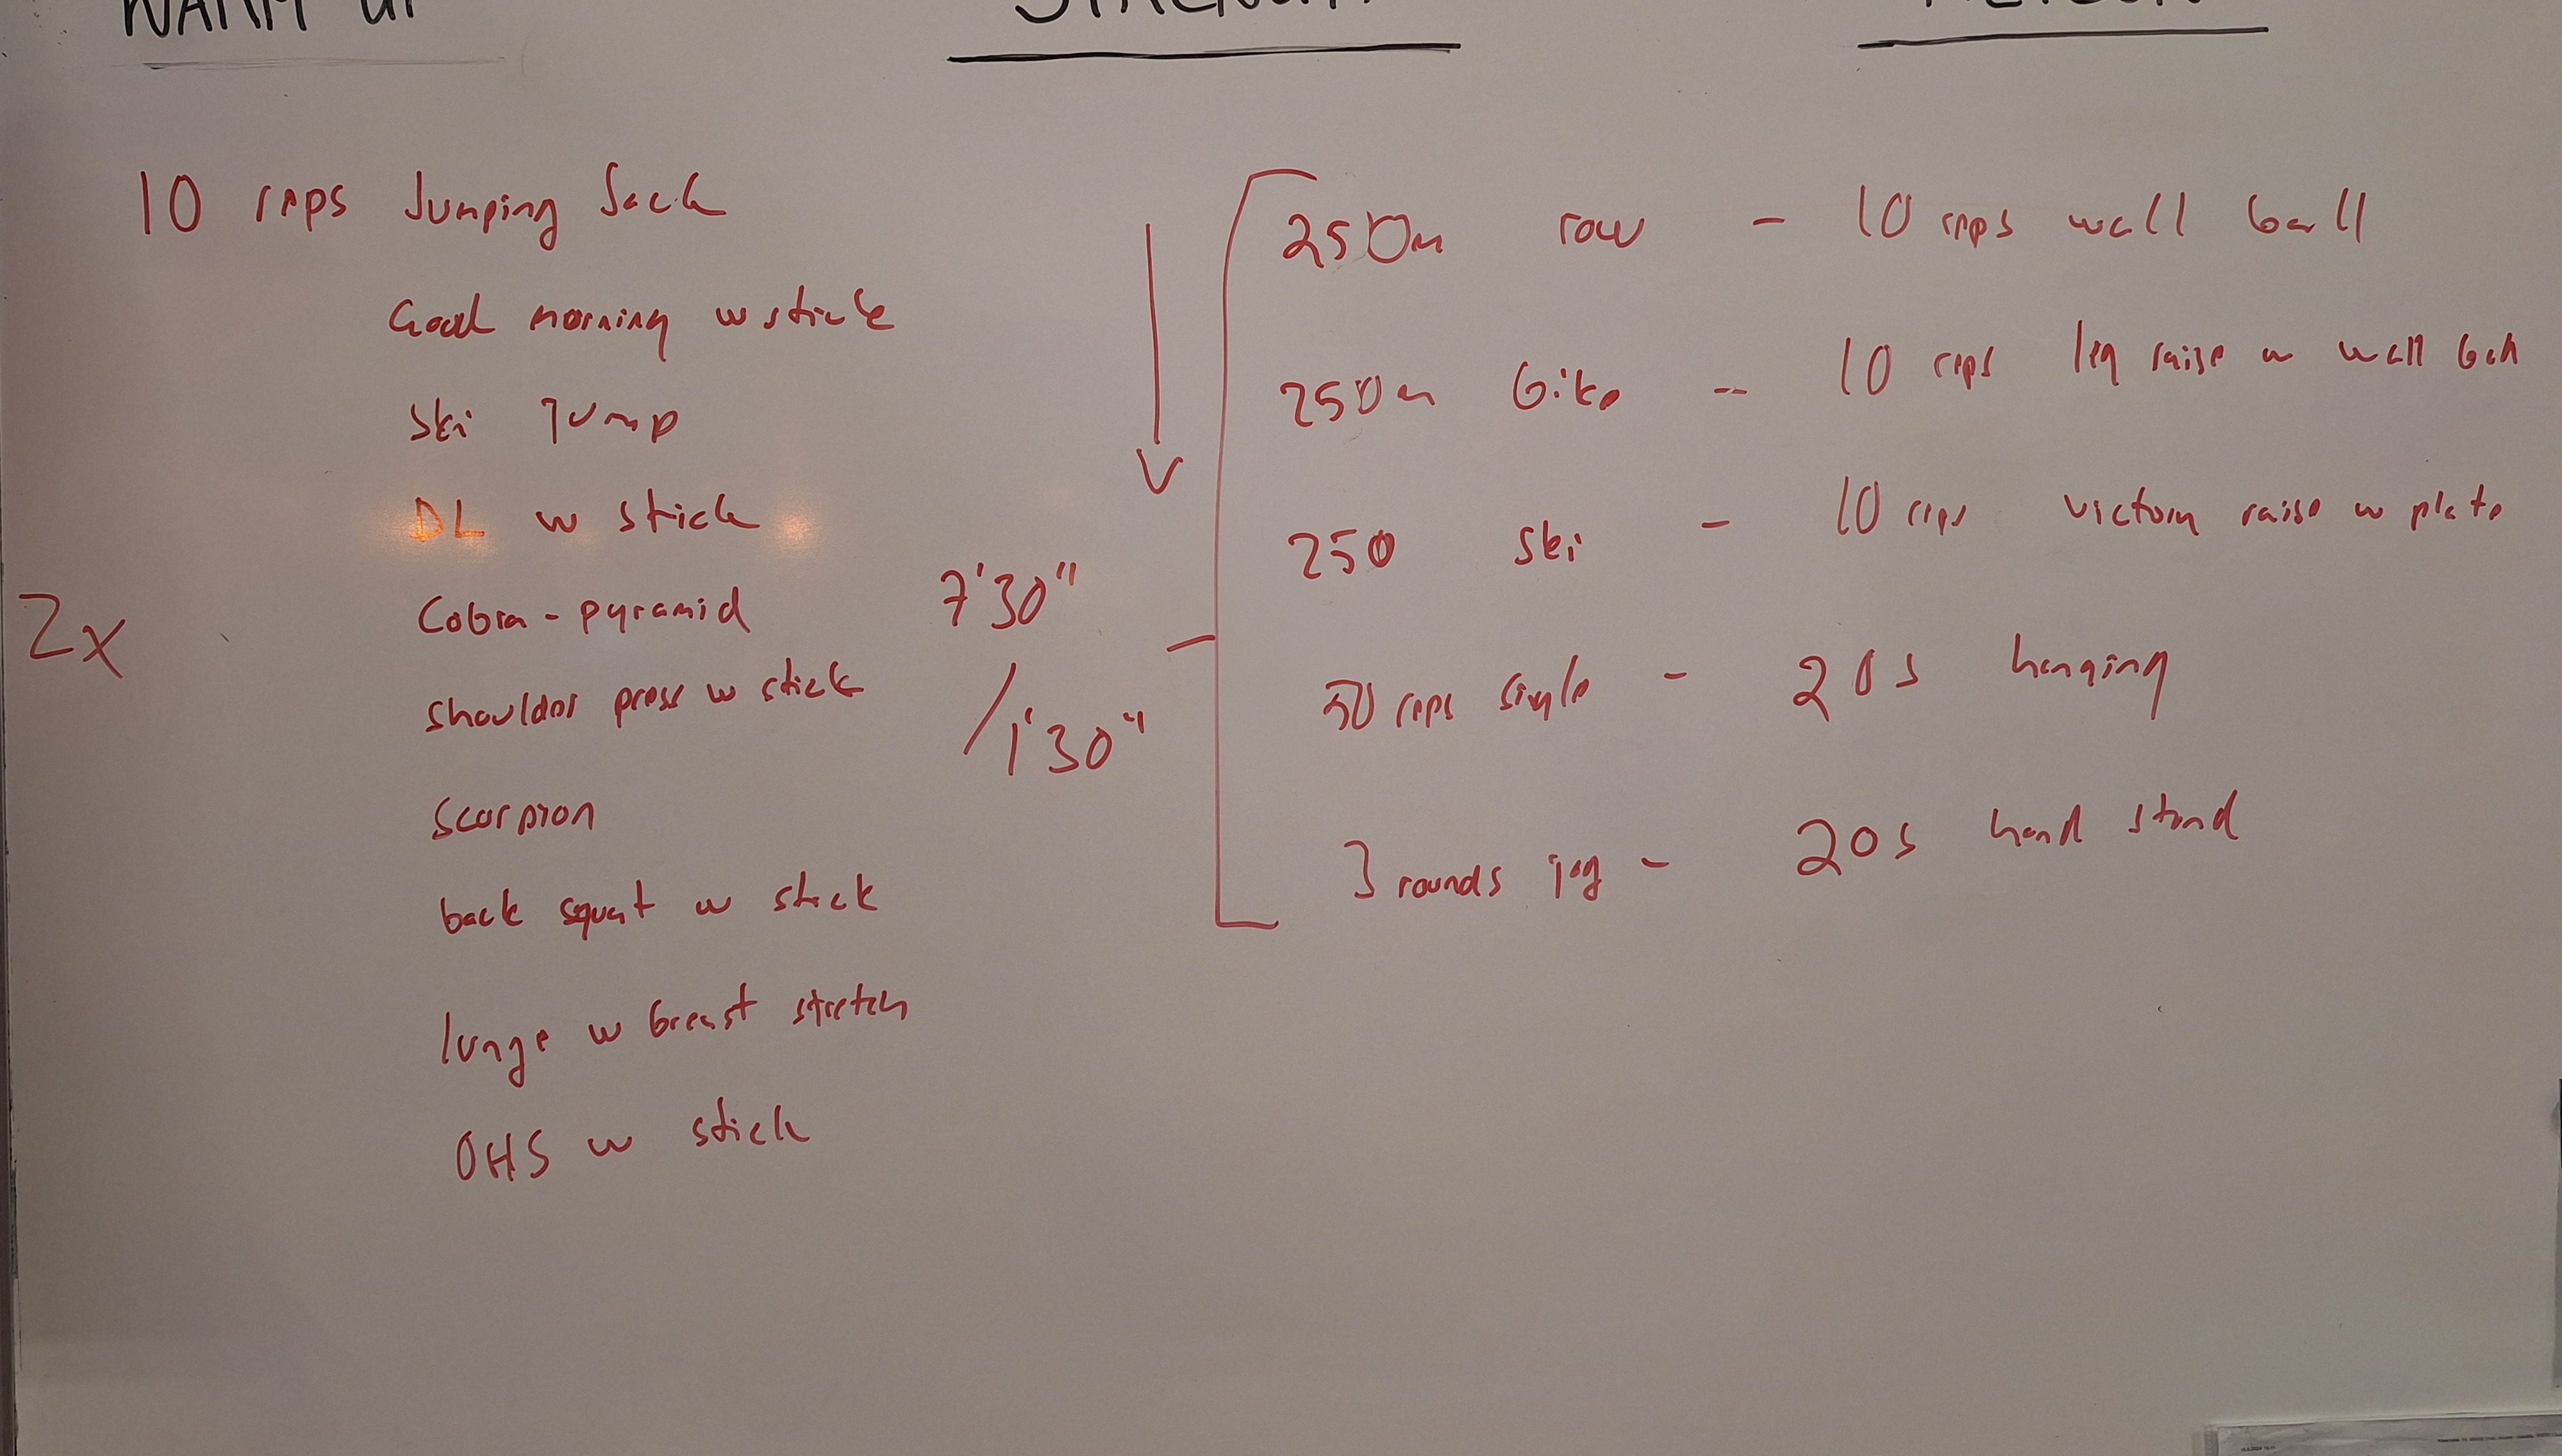 WARM UP
STRENGTH
METCON
10 reps Jumping Jack
Good morning w stick
Ski Jump
DL w stick
Cobra - pyramid
shoulder press w stick
Scorpion
back squat w stick
lunge w breast stretch
OHS w stick
2x
7'30"
/1'30"
250m row - 10 reps wall ball
250m bike - 10 reps leg raise w wall ball
250 ski - 10 reps victory raise w plate
50 reps single - 20s hanging
3 rounds jog - 20s hand stand